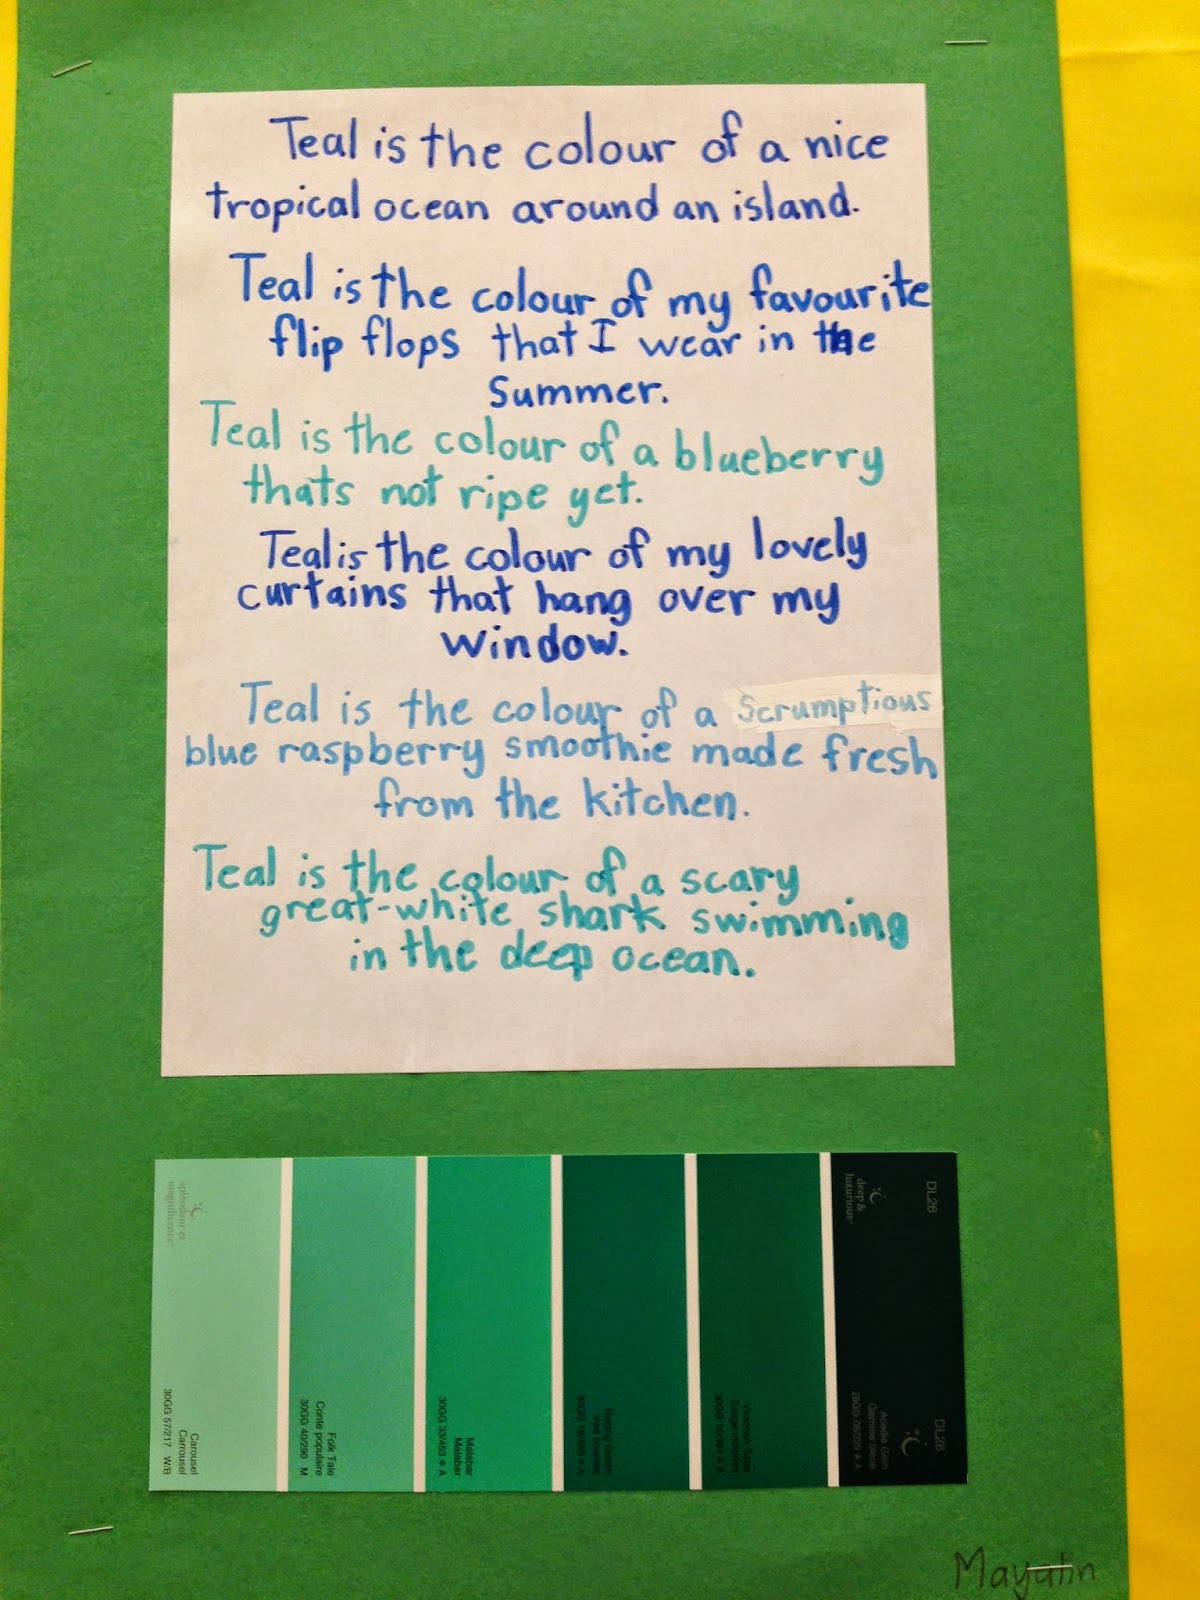 Teal is the colour of a nice
tropical ocean around an island.
Teal is the colour of my favourite
flip flops that I wear in the
Summer.
Teal is the colour of a blueberry
thats not ripe yet.
Teal is the colour of my lovely
curtains that hang over my
window.
Teal is the colour of a Scrumptious
blue raspberry smoothie made fresh
from the kitchen.
Teal is the colour of a scary
great-white shark swimming
in the deep ocean.
splendeur et
magnificence
Carousel
Carrousel
30GG 57/217 W/B
Folk Tale
Conte populaire
30GG 40/290 M
Malabar
Malabar
30GG 33/453 * A
Racing Green
Vert
Victorian Sage
Sauge victorien
deep &
luxurious
DL26
DL26
Acadia Gem
Gemme bleue